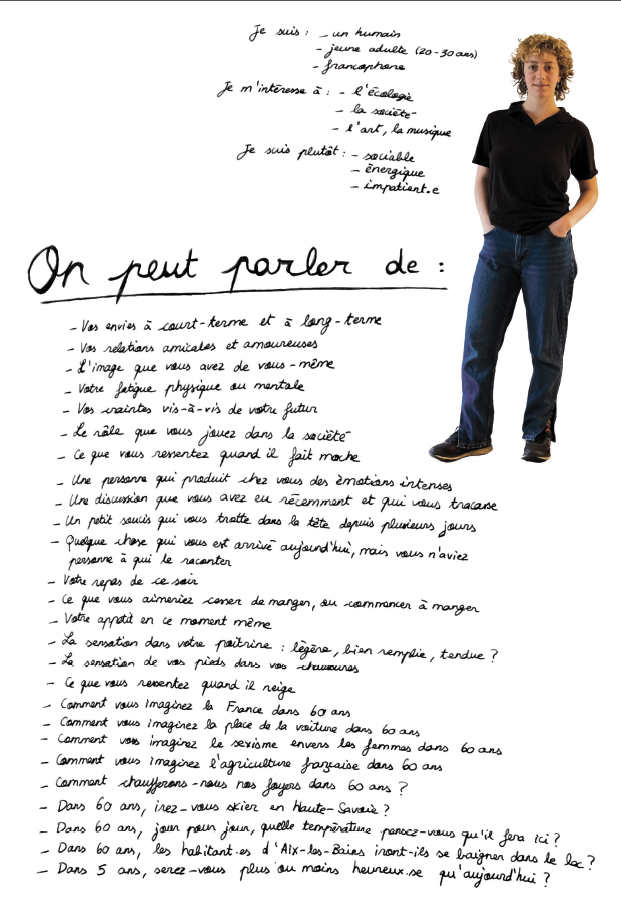 Je suis : - un humain
- jeune adulte (20-30 ans)
- francophone
Je m'intéresse à : - l'écologie
- la société
- l'art, la musique
Je suis plutôt : - sociable
- énergique
- impatient.e
On peut parler de :
- Vos envies à court-terme et à long-terme
- Vos relations amicales et amoureuses
- L'image que vous avez de vous-même
- Votre fatigue physique ou mentale
- Vos craintes vis-à-vis de votre futur
- Le rôle que vous jouez dans la société
- Ce que vous ressentez quand il fait moche
- Une personne qui produit chez vous des émotions intenses
- Une discussion que vous avez eu récemment et qui vous tracasse
- Un petit soucis qui vous trotte dans la tête depuis plusieurs jours
- Quelque chose qui vous est arrivé aujourd'hui, mais vous n'aviez
personne à qui le raconter
- Votre repas de ce soir
- Ce que vous aimeriez cesser de manger, ou commencer à manger
- Votre appétit en ce moment même
- La sensation dans votre poitrine : légère, bien remplie, tendue ?
- La sensation de vos pieds dans vos chaussures
- Ce que vous ressentez quand il neige
- Comment vous imaginez la France dans 60 ans
- Comment vous imaginez la place de la voiture dans 60 ans
- Comment vous imaginez le sexisme envers les femmes dans 60 ans
- Comment vous imaginez l'agriculture française dans 60 ans
- Comment chaufferons-nous nos foyers dans 60 ans ?
- Dans 60 ans, irez-vous skier en Haute-Savoie ?
- Dans 60 ans, jour pour jour, quelle température pensez-vous qu'il fera ici ?
- Dans 60 ans, les habitant.es d'Aix-les-Bains iront-ils se baigner dans le lac ?
- Dans 5 ans, serez-vous plus ou moins heureux.se qu'aujourd'hui ?